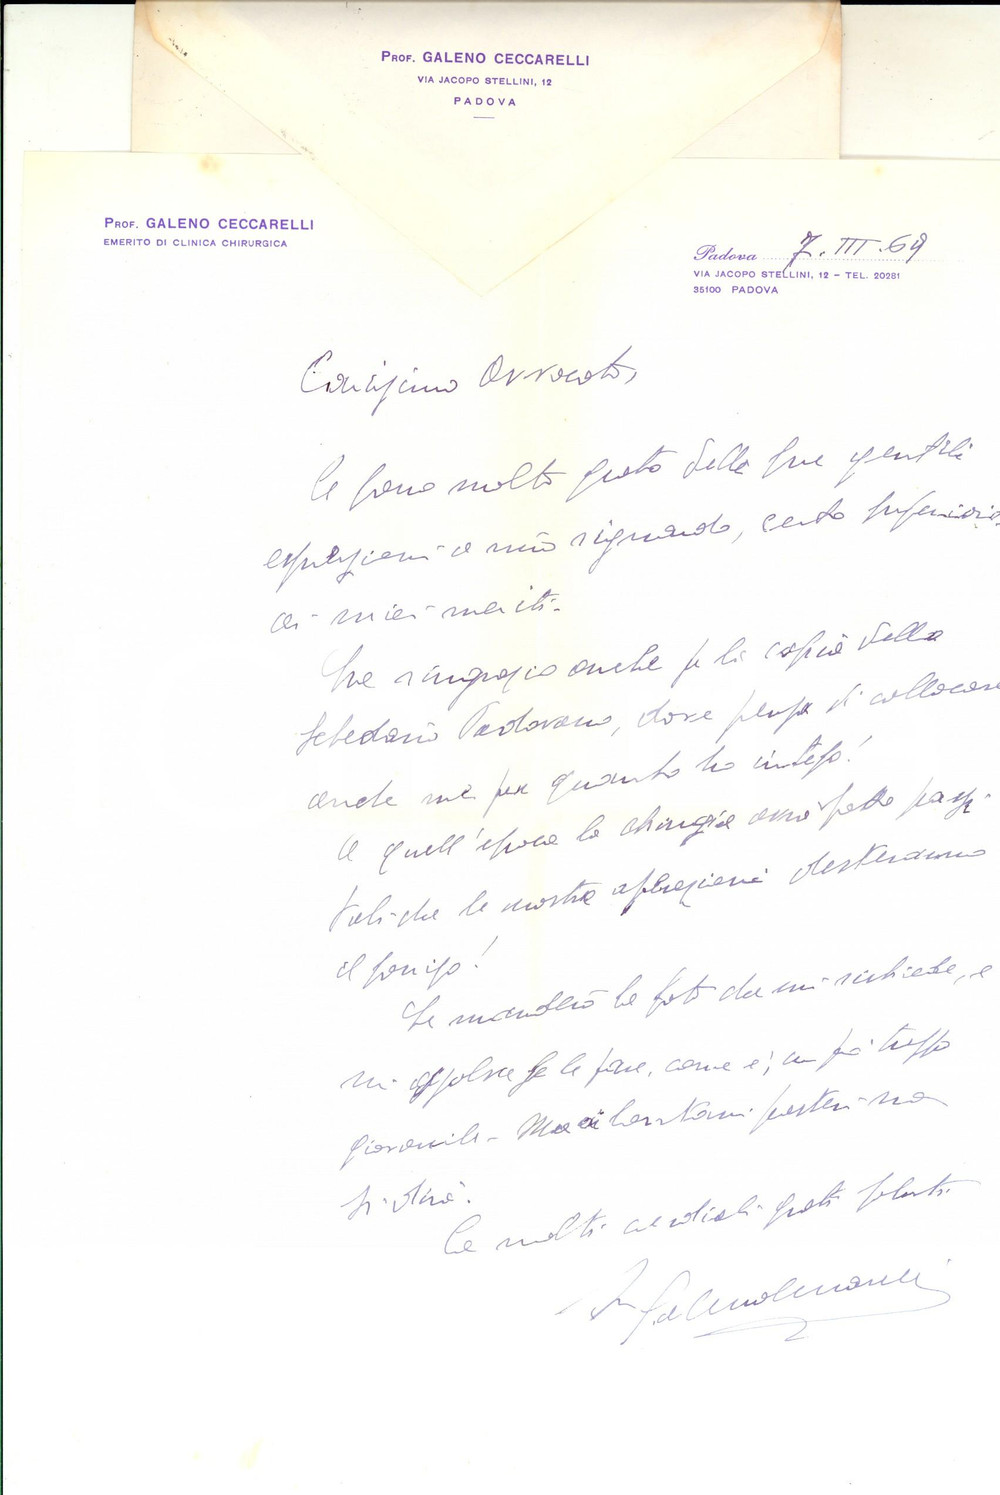 PROF. GALENO CECCARELLI
VIA JACOPO STELLINI, 12
PADOVA
PROF. GALENO CECCARELLI
EMERITO DI CLINICA CHIRURGICA
Padova 7.III.69
VIA JACOPO STELLINI, 12 - TEL. 20281
35100 PADOVA
Carissimo Avvocato,
Le sono molto grato delle Sue gentili
espressioni a mio riguardo, certo superiori
ai miei meriti.
La ringrazio anche per la copia della
Padovano, dove pensa di collocare
anche me per quanto ho inteso!
A quell'epoca la chirurgia aveva fatto passi
tali che le nostre operazioni desteranno
il sorriso!
Le manderò la foto che mi richiede, e
mi assolva se le pare, come è, un po' troppo
giovanile - Ma ai lontani posteri non
si dirà.
Le molti cordiali grati saluti